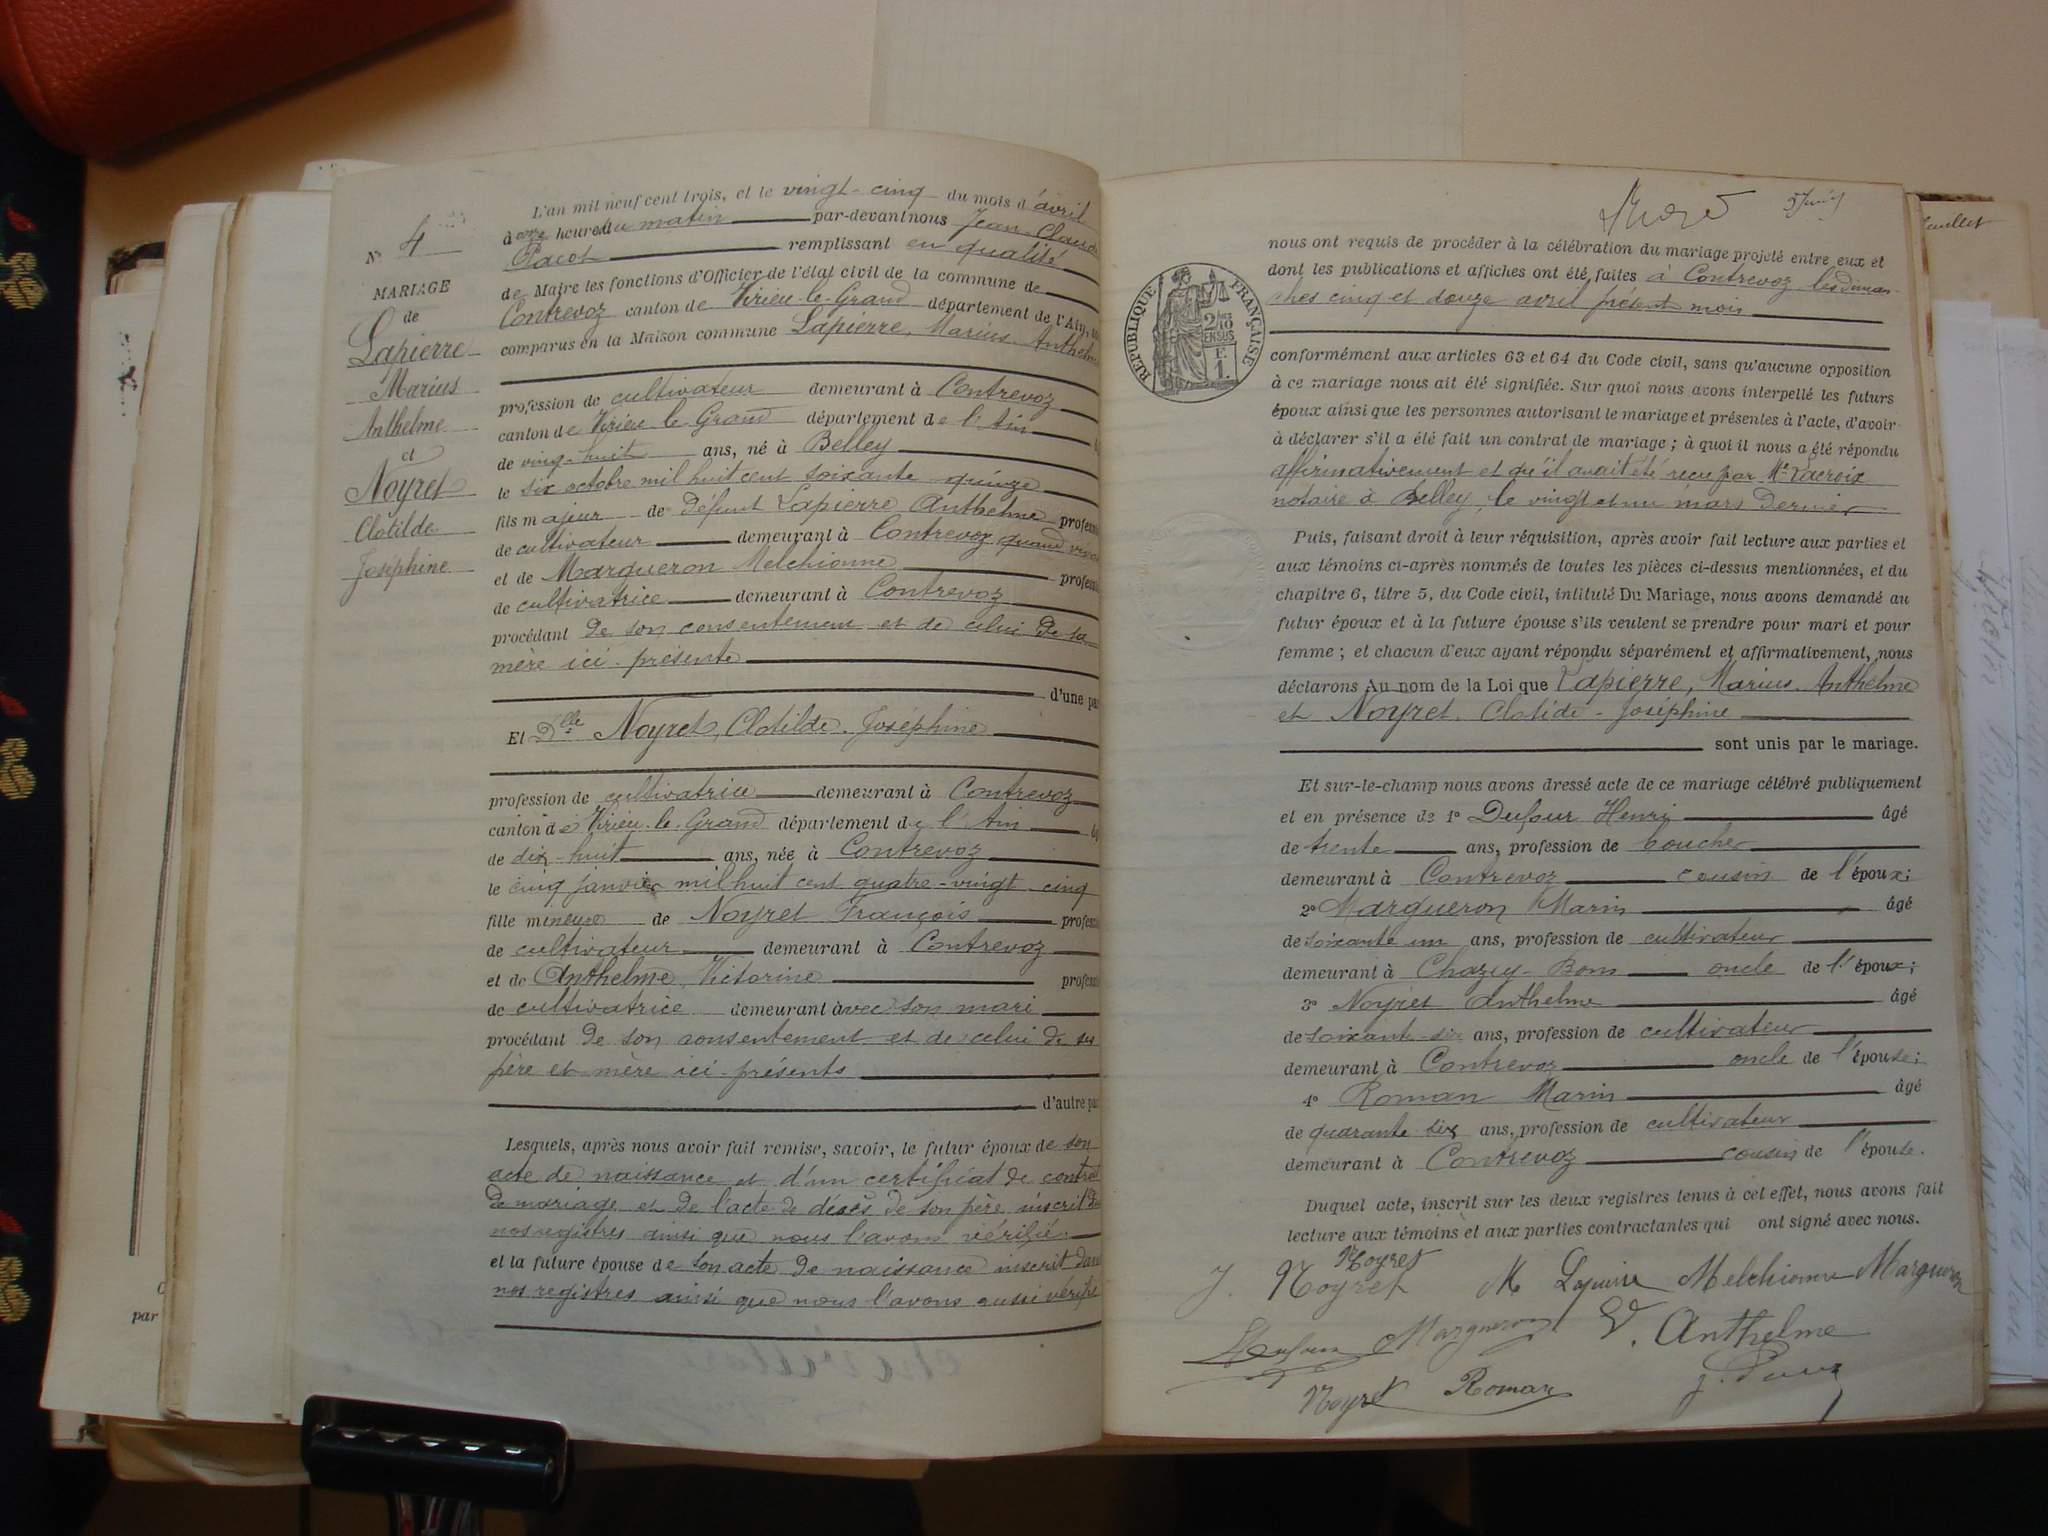 N° 4
MARIAGE
de
Lapierre
Marius
Anthelme
et
Noyret
Clotilde
Joséphine
L'an mil neuf cent trois, et le vingt-cinq du mois d'avril
à onze heures du matin par-devant nous Jean-Claude
Pacot remplissant en qualité
de Maire les fonctions d'Officier de l'état civil de la commune de
Contrevoz canton de Virieu-le-Grand département de l'Ain,
comparus en la Maison commune Lapierre, Marius-Anthelme
profession de cultivateur demeurant à Contrevoz
canton de Virieu-le-Grand département de l'Ain
de ving-huit ans, né à Belley
le six octobre mil huit cent soixante quinze
fils majeur de défunt Lapierre Anthelme profess
de cultivateur demeurant à Contrevoz quand viva
et de Margueron Melchionne profess
de cultivatrice demeurant à Contrevoz
procédant de son consentement et de celui de sa
mère ici-présente
d'une pa
Et Dlle Noyret, Clotilde-Joséphine
profession de cultivatrice demeurant à Contrevoz
canton de Virieu-le-Grand département de l'Ain
de dix-huit ans, née à Contrevoz
le cinq janvier mil huit cent quatre-vingt-cinq
fille mineure de Noyret François profess
de cultivateur demeurant à Contrevoz
et de Anthelme Victorine profess
de cultivatrice demeurant avec son mari
procédant de son consentement et de celui de ses
père et mère ici-présents
d'autre pa
Lesquels, après nous avoir fait remise, savoir, le futur époux de son
acte de naissance et d'un certificat de contrat
de mariage et de l'acte de décès de son père inscrit
nos registres ainsi que nous l'avons vérifié
et la future épouse de son acte de naissance inscrit dans
nos registres ainsi que nous l'avons aussi vérifié
RÉPUBLIQUE FRANÇAISE
2/10
EN SUS
F.
1.
nous ont requis de procéder à la célébration du mariage projeté entre eux et
dont les publications et affiches ont été faites à Contrevoz les diman-
ches cinq et douze avril présent mois
conformément aux articles 63 et 64 du Code civil, sans qu'aucune opposition
à ce mariage nous ait été signifiée. Sur quoi nous avons interpellé les futurs
époux ainsi que les personnes autorisant le mariage et présentes à l'acte, d'avoir
à déclarer s'il a été fait un contrat de mariage ; à quoi il nous a été répondu
affirmativement et qu'il avait été reçu par Me Lacroix
notaire à Belley, le vingt et un mars dernier
Puis, faisant droit à leur réquisition, après avoir fait lecture aux parties et
aux témoins ci-après nommés de toutes les pièces ci-dessus mentionnées, et du
chapitre 6, titre 5, du Code civil, intitulé Du Mariage, nous avons demandé au
futur époux et à la future épouse s'ils veulent se prendre pour mari et pour
femme ; et chacun d'eux ayant répondu séparément et affirmativement, nous
déclarons Au nom de la Loi que Lapierre, Marius-Anthelme
et Noyret Clotide-Joséphine
sont unis par le mariage.
Et sur-le-champ nous avons dressé acte de ce mariage célébré publiquement
et en présence de 1° Dufour Henri âgé
de trente ans, profession de boucher
demeurant à Contrevoz cousin de l'époux;
2° Margueron Marin âgé
de soixante un ans, profession de cultivateur
demeurant à Chazey-Bons oncle de l'époux;
3° Noyret Anthelme âgé
de soixante-six ans, profession de cultivateur
demeurant à Contrevoz oncle de l'épouse;
4° Roman Marin âgé
de quarante six ans, profession de cultivateur
demeurant à Contrevoz cousin de l'épouse.
Duquel acte, inscrit sur les deux registres tenus à cet effet, nous avons fait
lecture aux témoins et aux parties contractantes qui ont signé avec nous.
Noyret
J. Noyret M Lapierre Melchionne Margueron
Dufour Margueron V. Anthelme
Noyret Roman
par
juillet